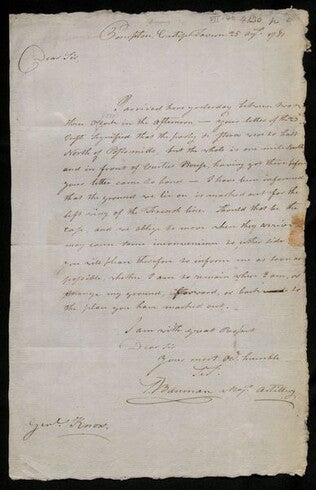 Pompton Curtis's Tavern 25 Augt. 1781
Dear Sir,
I arrived here yesterday between two or
three oClock in the afternoon — your letter of the
Instt signified that the park, is to have been to halt
North of Pifsemido. but the whole is one mile South
and in front of Curtis House, having got there before
your letter came to hand. — I have been informed
that the ground we lie on is marked out for the
left wing of the Second line. Should that be the
case, and we oblige to move when they arrive
may cause some inconvenience to either side
you will please therefore to inform me as soon as
possible, whether I am to remain where I am, or
change my ground, forward, or back to
the plan you have marked out. —
I am with great Respect
Dear Sir
Your most Ob. humble
Ser.
S Bauman Majr. Artillery
Genl. Knox.